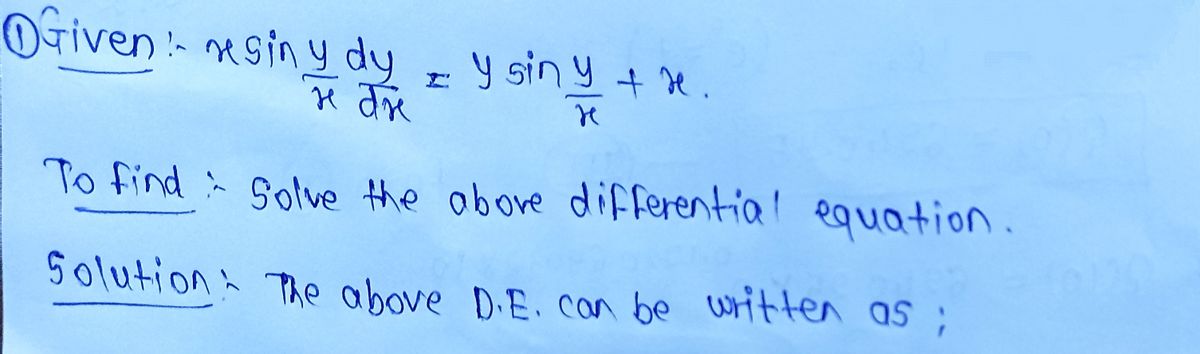 ① Given :- x sin y/x dy/dx = y sin y/x + x.
To find :- Solve the above differential equation.
Solution :- The above D.E. can be written as ;